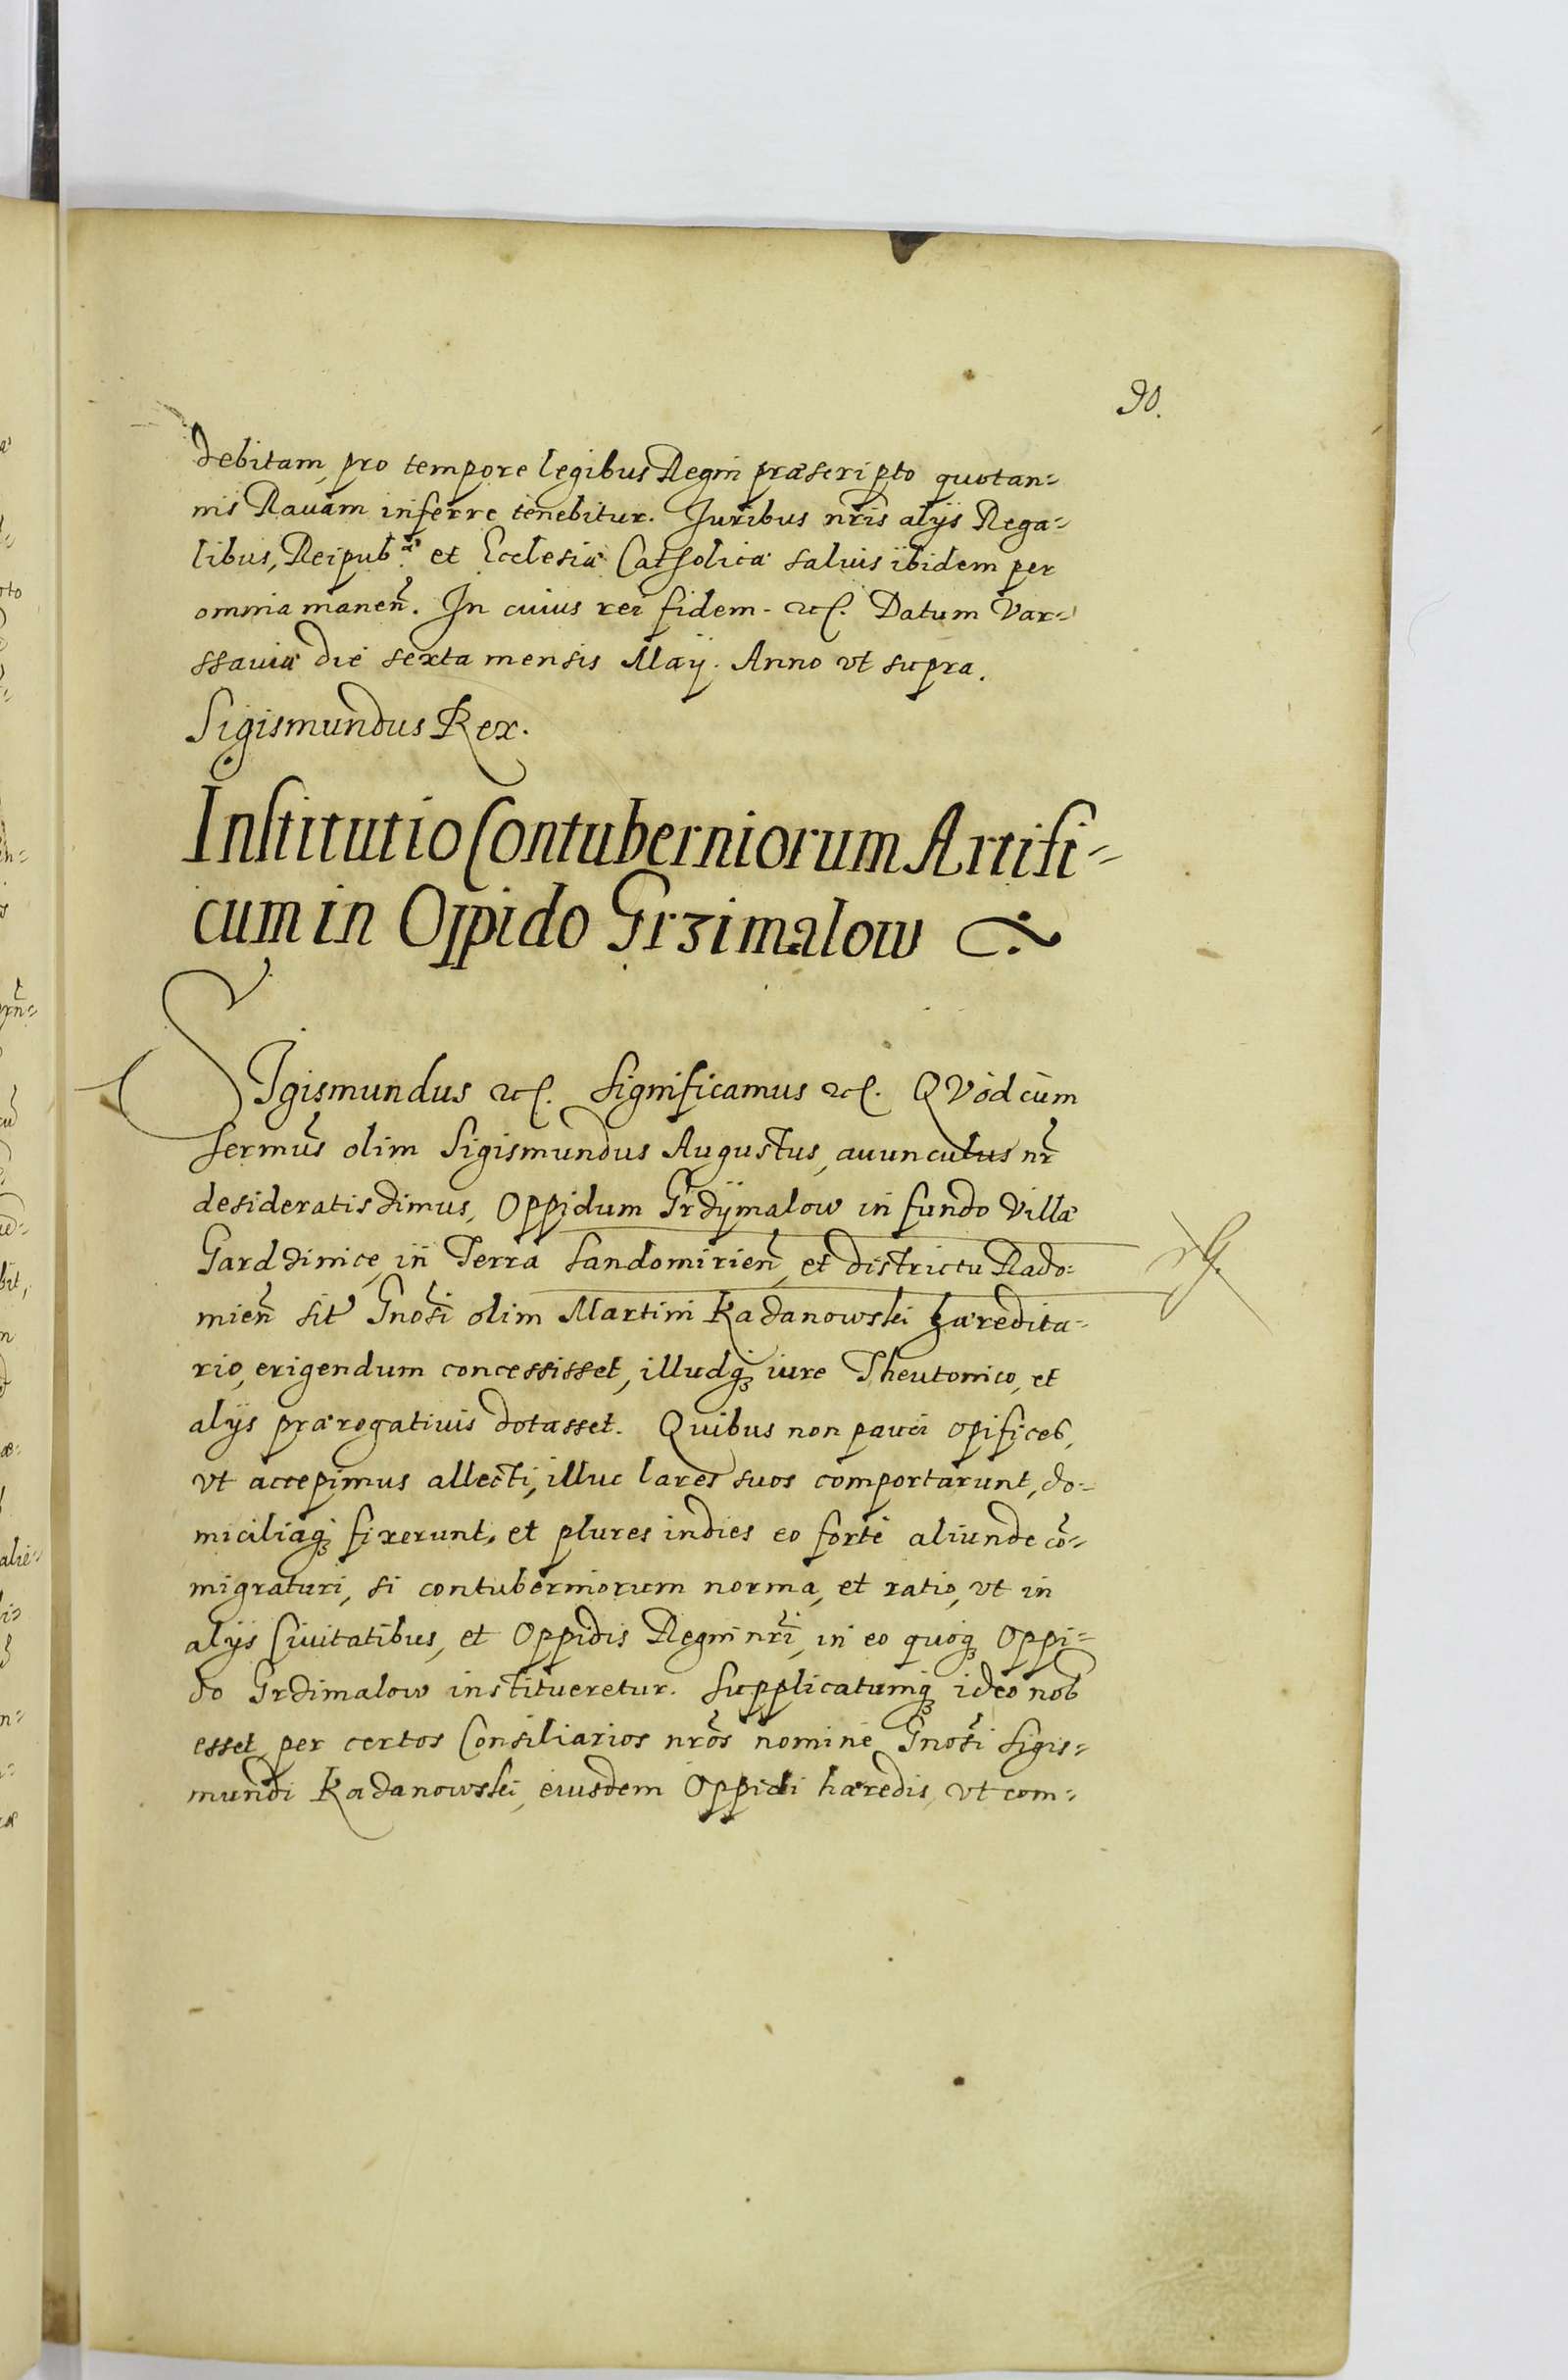 90.
debitam, pro tempore legibus Regni præscripto quotan=
nis Rauam inferre tenebitur. Juribus nr̃is alijs Rega=
libus, Reipub.æ et Ecclesiæ Catholicæ saluis ibidem per
omnia manen̄. In cuius rei fidem. etc. Datum Var=
ssauiæ die sexta mensis Maij. Anno vt supra.
Sigismundus Rex.
Institutio Contuberniorum Artifi=
cum in Oppido Grzimalow
SIgismundus etc. Significamus etc. QVòd cùm
sermus̃ olim Sigismundus Augustus, auunculus nr̃
desideratissimus, Oppidum Grzÿmalow in fundo Villæ
Gardzinice, in Terra Sandomirien̄, et districtu Rado=
mien̄ sit̃ Gnosĩ olim Martini Kazanowski hæredita=
rio, erigendum concessisset, illudq́ꝫ iure Theutonico, et
alijs prærogatiuis dotasset. Quibus non pauci opifices,
vt accepimus allecti, illuc lares suos comportarunt, do=
miciliaq́ꝫ fixerunt, et plures indies eo fortè aliunde cõ=
migraturi, si contuberniorum norma, et ratio, vt in
alijs Ciuitatibus, et Oppidis Regni nrĩ, in eo quoqꝫ Oppi=
do Grzimalow institueretur. Supplicatumqꝫ ideo nob
esset, per certos Consiliarios nrõs nomine Gnosĩ Sigis=
mundi Kazanowski, eiusdem Oppidi hæredis, vt com=